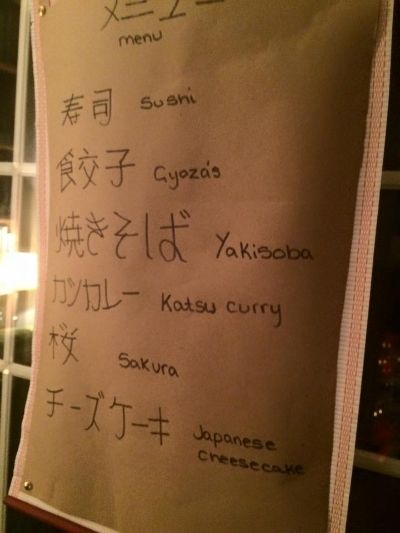 メニュー
menu
寿司 sushi
餃子 Gyoza's
焼きそば Yakisoba
カツカレー Katsu curry
桜 Sakura
チーズケーキ Japanese
cheesecake